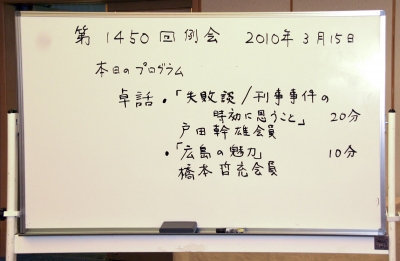 第1450回例会 2010年3月15日
本日のプログラム
卓話・「失敗談/刑事事件の
時効に思うこと」 20分
戸田幹雄会員
・「広島の魅力」 10分
橋本哲充会員